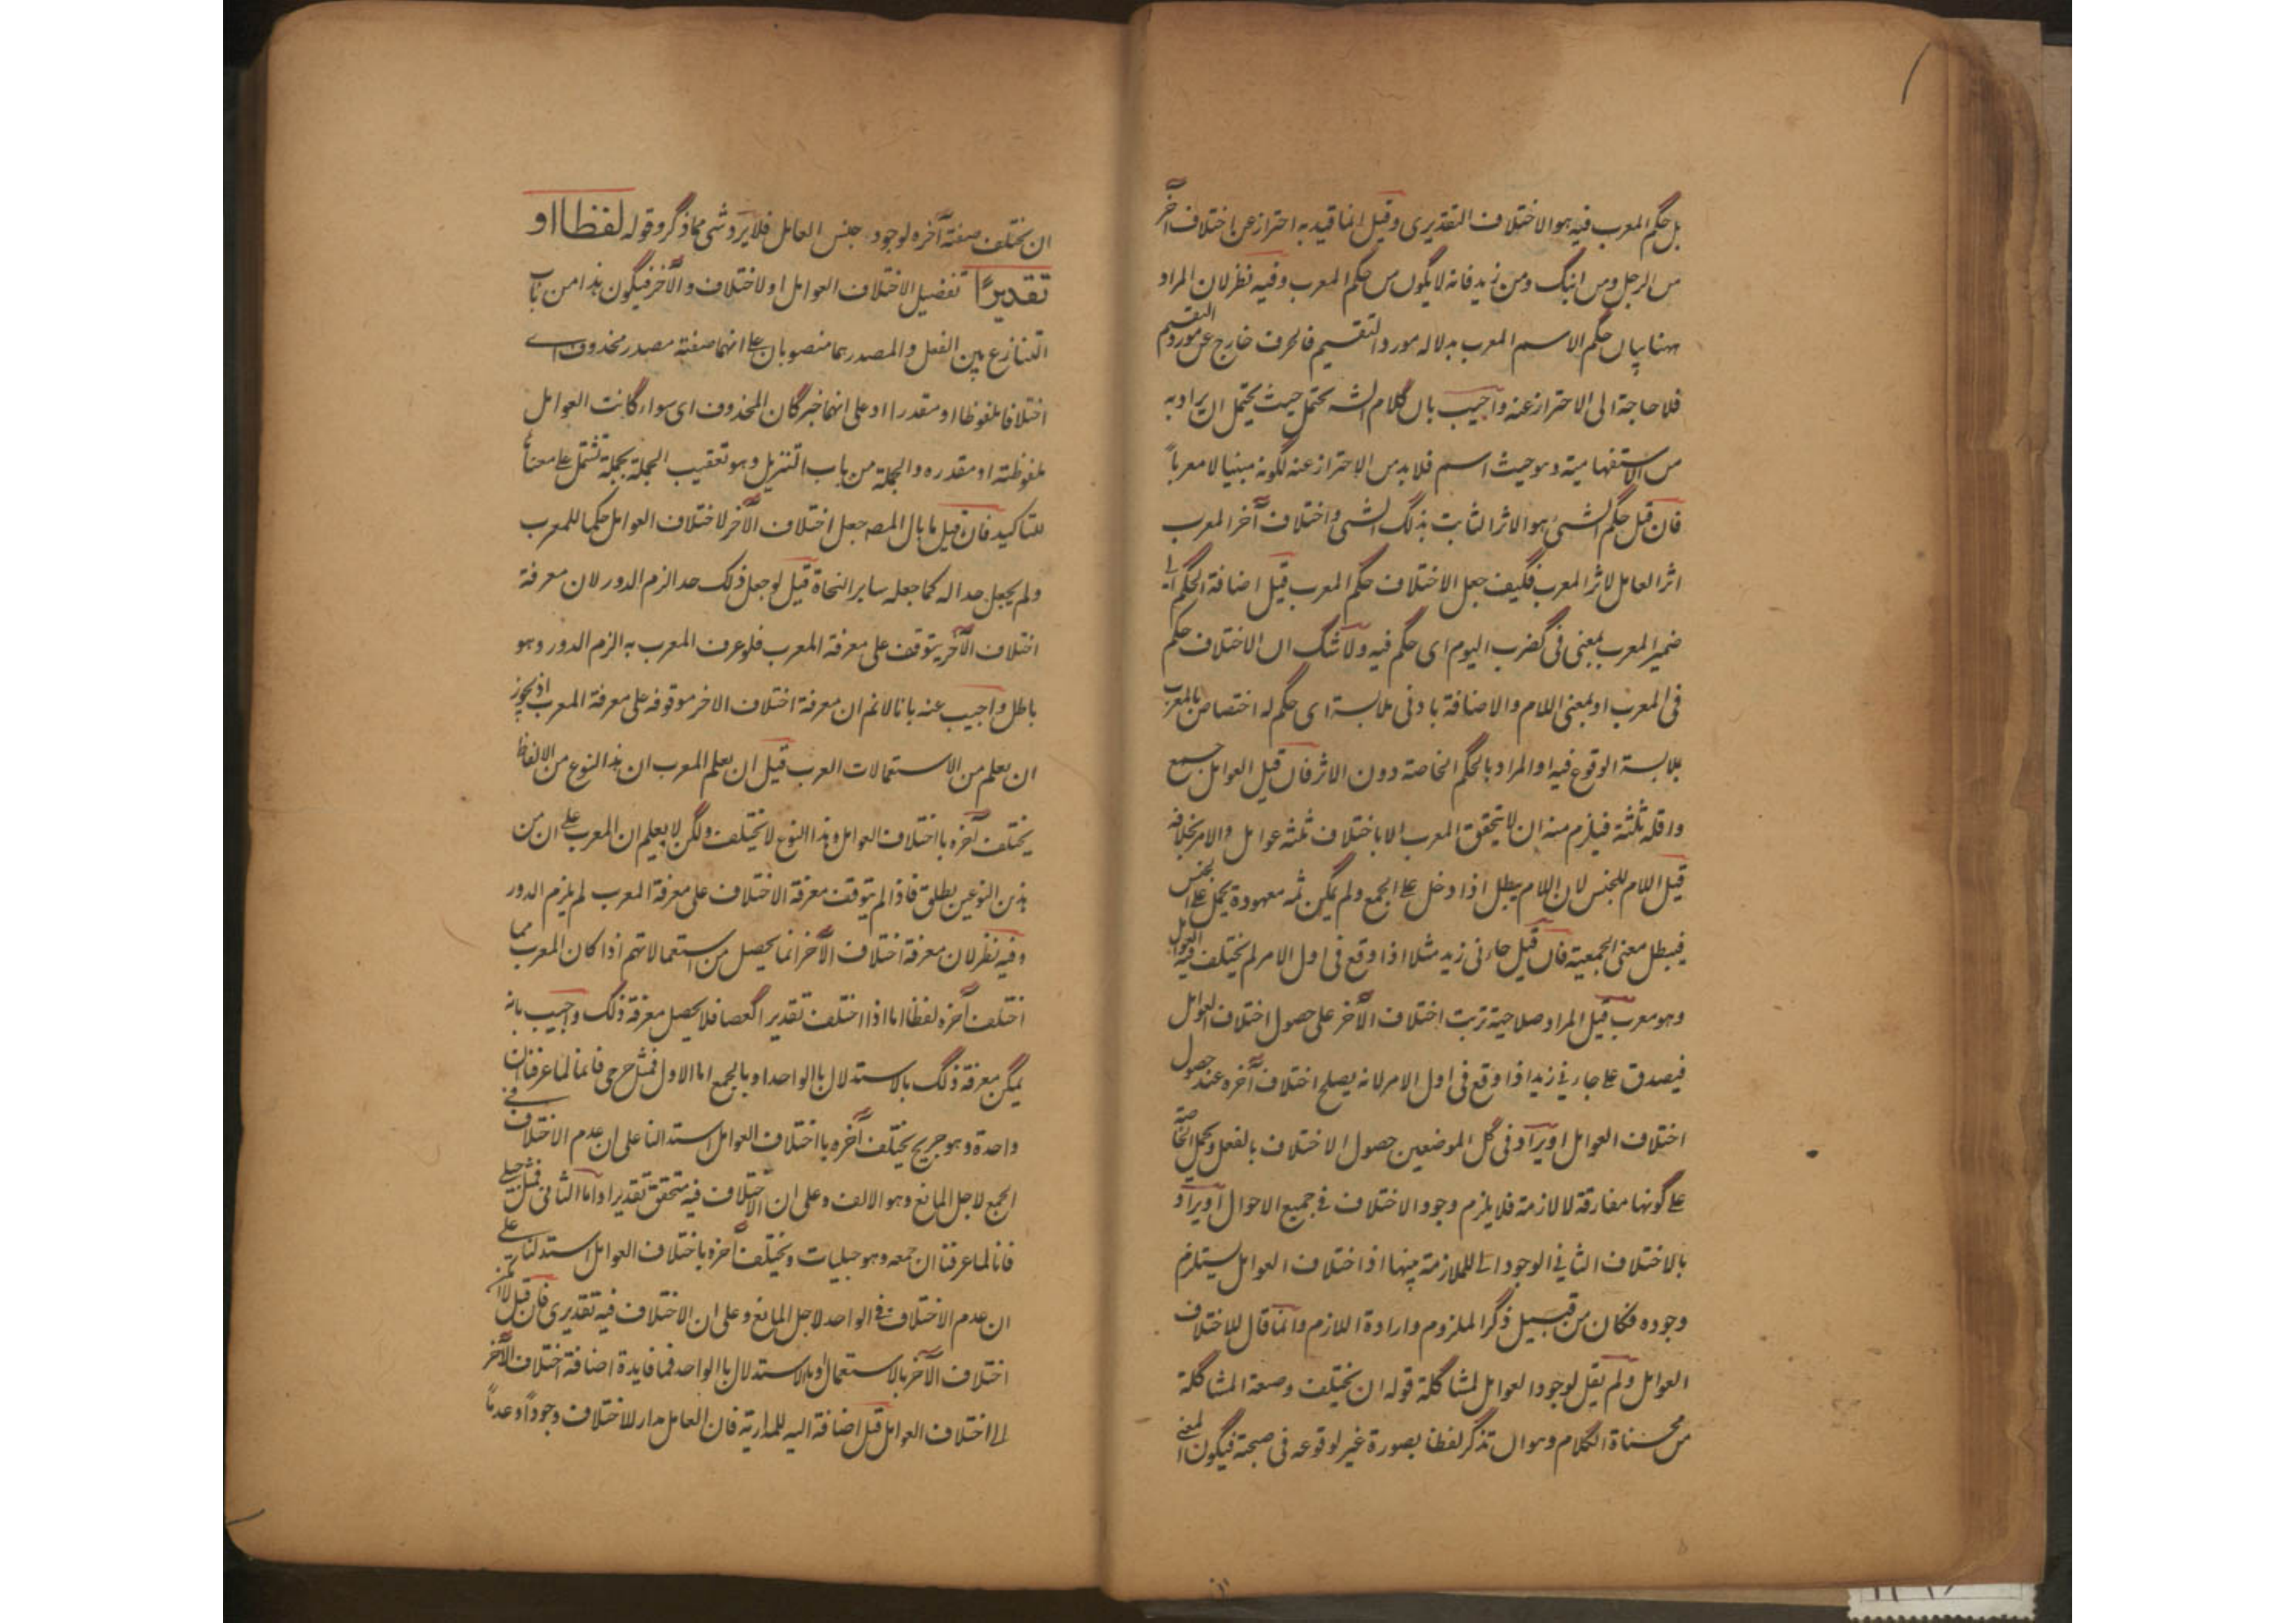 بل حكم المعرب فيه هو الاختلاف التقديرى وقيل انما قيد به احتراز عن اختلاف آخر
من الرجل ومن ابنك ومن زيد فانه لا يكون من حكم المعرب وفيه نظر لان المراد
ههنا بيان حكم الاسم المعرب بدلالة مورد التقسيم فالحرف خارج عن مورد التقسيم
فلا حاجة الى الاحتراز عنه واجيب بان كلام الشه يحتمل حيث يحتمل ان يراد به
من الاستفهامية وهو حيث اسم فلا بد من الاحتراز عنه لكونه مبنيا لا معرباً
فان قيل حكم الشىء هو الاثر الثابت بذلك الشى واختلاف آخر المعرب
اثر العامل لا اثر المعرب فكيف جعل الاختلاف حكم المعرب قيل اضافة الحكم الى
ضمير المعرب بمعنى فى كضرب اليوم اى حكم فيه ولا شك ان الاختلاف حكم
فى المعرب او بمعنى اللام والاضافة بادنى ملابسة اى حكم له اختصاص بالمعرب
بملابسة الوقوع فيه او المراد بالحكم الخاصة دون الاثر فان قيل العوامل جمع
واقله ثلثة فيلزم منه ان لا يتحقق المعرب الا باختلاف ثلثة عوامل والامر بخلافه
قيل اللام للجنس لان اللام يبطل اذا دخل على الجمع ولم يكن ثمه معهودة يحمل على الجنس
فيبطل معنى الجمعية فان قيل جاءنى زيد مثلا اذا وقع فى اول الامر لم يختلف فيه العوامل
وهو معرب قيل المراد صلاحية ترتب اختلاف الآخر على حصول اختلاف العوامل
فيصدق على جاءنى زيد اذا وقع فى اول الامر لانه يصلح اختلاف آخره عند حصول
اختلاف العوامل او يراد فى كل الموضعين حصول الاختلاف بالفعل ويحمل الخاصة
على كونها مفارقة لا لازمة فلا يلزم وجود الاختلاف فى جميع الاحوال او يراد
بالاختلاف الثانى الوجود اى للملازمة بينها اذ اختلاف العوامل يستلزم
وجوده فكان من قبيل ذكر الملزوم وارادة اللازم وانما قال للاختلاف
العوامل ولم يقل لوجود العوامل لمشاكلة قوله ان يختلف وصعة المشاكلة
من محسناة الكلام وهو ان تذكر لفظا بصورة غير لوقوعه فى صحبة فيكون المعنى
ان يختلف صفة آخره لوجود جنس العامل فلا يرد شى مما ذكر وقوله لفظا او
تقديرًا تفصيل الاختلاف العوامل او لاختلاف والآخر فيكون هذا من باب
التنازع بين الفعل والمصدر هما منصوبان على انهما صفة مصدر محذوف اى
اختلافا ملفوظا او مقدرا او على انهما خبر كان المحذوف اى سواء كانت العوامل
ملفوظة او مقدره والجملة من باب التنزيل وهو تعقيب الجملة بجملة تشتمل على معناً
للتاكيد فان قيل ما بال المصه جعل اختلاف الآخر لاختلاف العوامل حكما للمعرب
ولم يجعل حدا له كما جعله ساير النحاة قيل لو جعل ذلك حد الزم الدور لان معرفة
اختلاف الآخر يتوقف على معرفة المعرب فلو عرف المعرب به الزم الدور وهو
باطل واجيب عنه بانا لا نم ان معرفة اختلاف الاخر موقوفه على معرفة المعرب اذ يجوز
ان يعلم من الاستعمالات العرب قيل ان يعلم المعرب ان هذا النوع من الالفاظ
يختلف آخره با اختلاف العوامل وهذا النوع لا يختلف ولكن لا يعلم ان المعرب على ان من
هذين النوعين يطلق فاذا لم يتوقف معرفة الاختلاف على معرفة المعرب لم يلزم الدور
وفيه نظر لان معرفة اختلاف الآخر انما يحصل من استعمالاتهم اذا كان المعرب مما
اختلف آخره لفظا اما اذا اختلف تقديرا كعصا فلا يحصل معرفة ذلك واجيب بانه
يمكن معرفة ذلك بالاستدلال با الواحد او بالجمع اما الاول فمثل جرحى فانما لما عرفنا ان
واحدة وهو جريح يختلف آخره با اختلاف العوامل استدللنا على ان عدم الاختلاف فى
الجمع لاجل المانع وهو الالف وعلى ان الاختلاف فيه متحقق تقديرا واما الثانى فمثل حبلى
فانا لما عرفنا ان جمعه وهو حبليات ويختلف آخره باختلاف العوامل استدللنا على
ان عدم الاختلاف فى الواحد لاجل المانع وعلى ان الاختلاف فيه تقديرى فان قيل لا
اختلاف الآخر بالاستعمال او بالاستدلال با الواحد فما فايدة اضافة اختلاف الآخر
الى اختلاف العوامل قيل اضافة اليه للمدارية فان العامل مدار للاختلاف وجوداً وعدماً